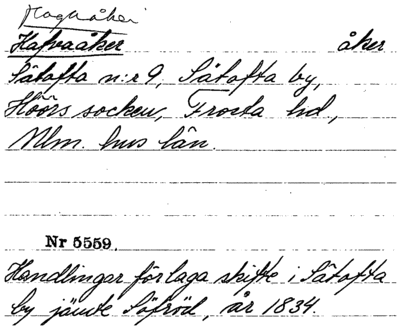 Hafvaåker åker
Såtofta n:r 9, Såtofta by,
Höörs socken, Frosta hd,
Mlm. hus län.
Nr 5559.
Handlingar för laga skifte i Såtofta
by jämte Söfröd, år 1834.